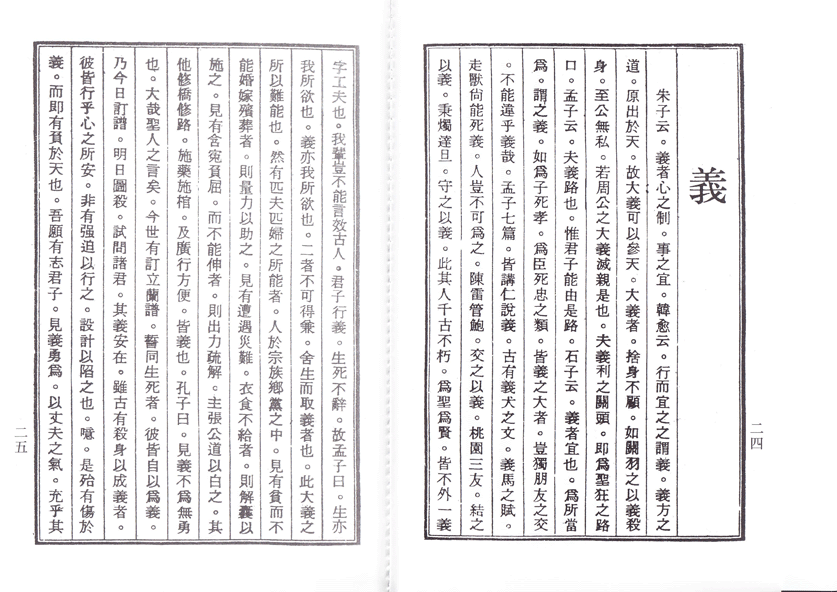 義
朱子云。義者心之制。事之宜。韓愈云。行而宜之之謂義。義方之
道。原出於天。故大義可以參天。大義者。捨身不顧。如關羽之以義殺
身。至公無私。若周公之大義滅親是也。夫義利之關頭。即爲聖狂之路
口。孟子云。夫義路也。惟君子能由是路。石子云。義者宜也。爲所當
爲。謂之義。如爲子死孝。爲臣死忠之類。皆義之大者。豈獨朋友之交
。不能違乎義哉。孟子七篇。皆講仁說義。古有義犬之文。義馬之賦。
走獸尙能死義。人豈不可爲之。陳雷管鮑。交之以義。桃園三友。結之
以義。秉燭達旦。守之以義。此其人千古不朽。爲聖爲賢。皆不外一義
二四
字工夫也。我輩豈不能言效古人。君子行義。生死不辭。故孟子曰。生亦
我所欲也。義亦我所欲也。二者不可得兼。舍生而取義者也。此大義之
所以難能也。然有匹夫匹婦之所能者。人於宗族鄉黨之中。見有貧而不
能婚嫁殯葬者。則量力以助之。見有遭遇災難。衣食不給者。則解囊以
施之。見有含寃負屈。而不能伸者。則出力疏解。主張公道以白之。其
他修橋修路。施藥施棺。及廣行方便。皆義也。孔子曰。見義不爲無勇
也。大哉聖人之言矣。今世有訂立蘭譜。誓同生死者。彼皆自以爲義。
乃今日訂譜。明日圖殺。試問諸君。其義安在。雖古有殺身以成義者。
彼皆行乎心之所安。非有强迫以行之。設計以陷之也。噫。是殆有傷於
義。而即有負於天也。吾願有志君子。見義勇爲。以丈夫之氣。充乎其
二五